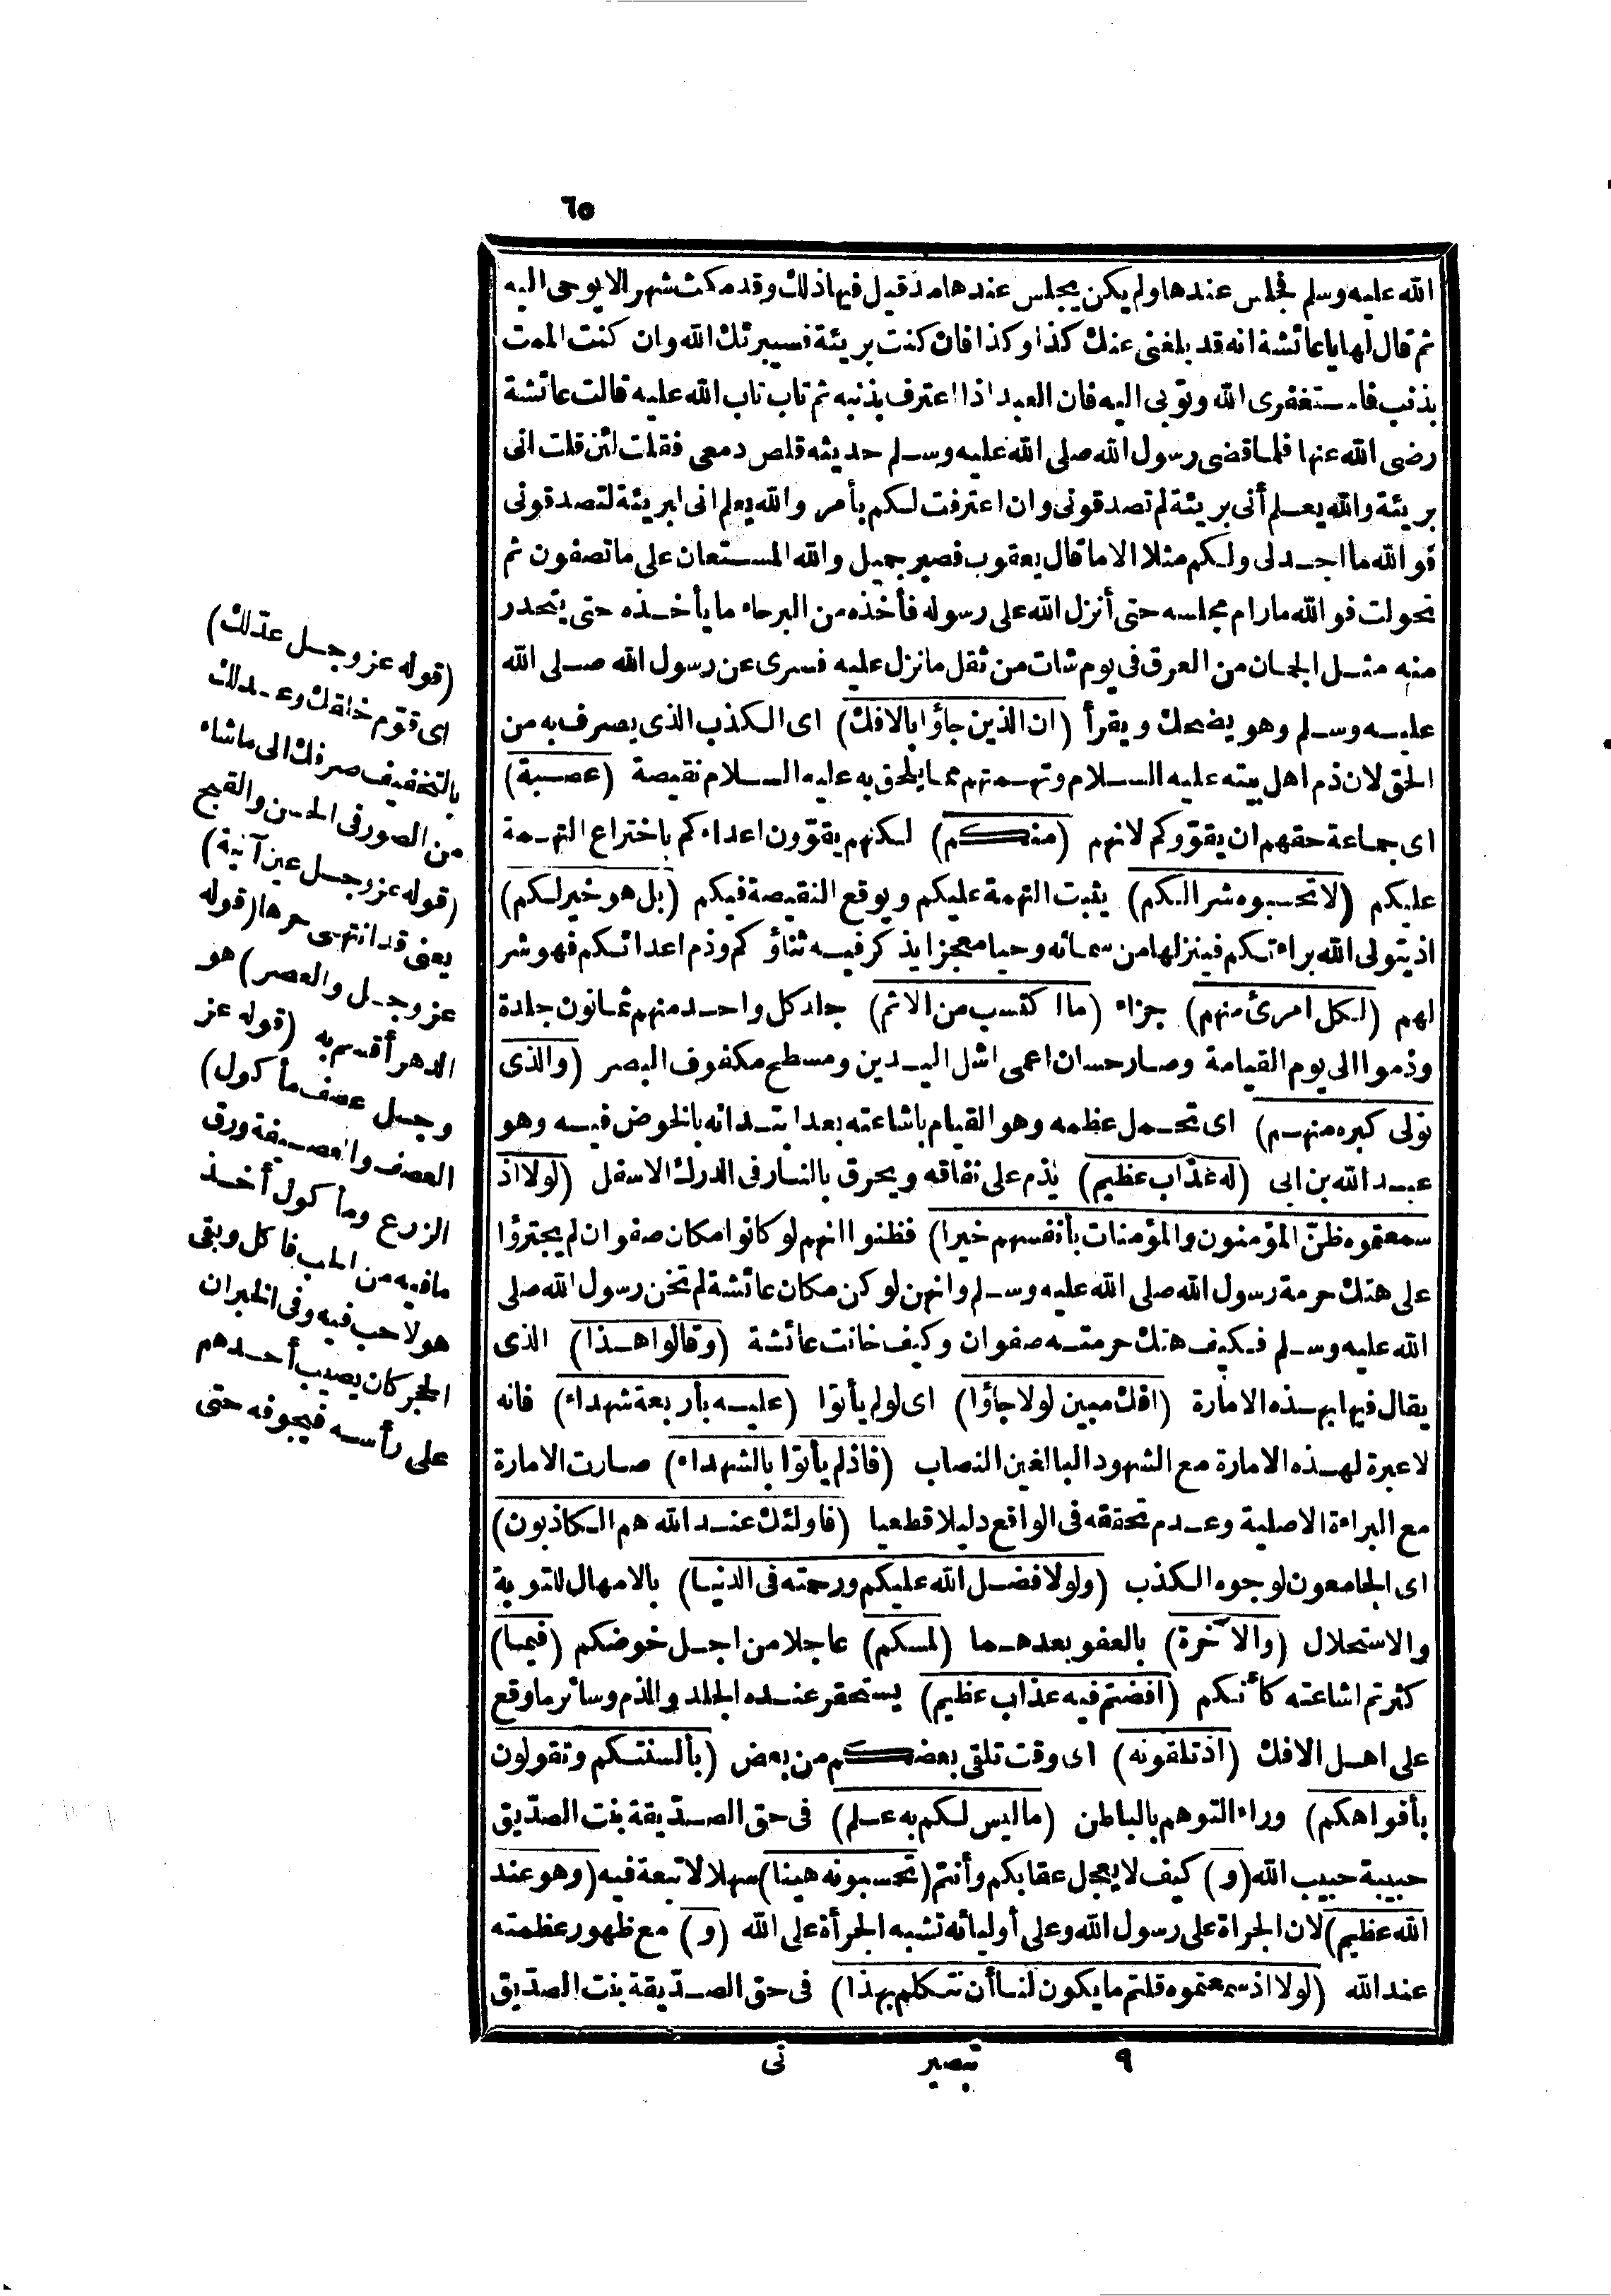 ٦٥
الله عليه وسلم فجلس عندها ولم يكن يجلس عندها مذ قيل فيها ذلك وقد مكث شهرا لا يوحى اليه
ثم قال لها يا عائشة انه قد بلغنى عنك كذا وكذا فان كنت بريئة فسيبرئك الله وان كنت الممت
بذنب فاستغفرى الله وتوبى اليه فان العبد اذا اعترف بذنبه ثم تاب تاب الله عليه قالت عائشة
رضى الله عنها فلما قضى رسول الله صلى الله عليه وسلم حديثه قلص دمعى فقلت لئن قلت انى
بريئة والله يعلم أنى بريئة لم تصدقونى وان اعترفت لكم بأمر والله يعلم انى لبريئة لتصدقونى
فوالله ما اجد لى ولكم مثلا الا ما قال يعقوب فصبر جميل والله المستعان على ما تصفون ثم
تحولت فوالله ما رام مجلسه حتى أنزل الله على رسوله فأخذه من البرحاء ما يأخذه حتى يتحدر
منه مثل الجمان من العرق فى يوم شات من ثقل ما نزل عليه فسرى عن رسول الله صلى الله
عليه وسلم وهو يضحك ويقرأ (ان الذين جاؤا بالافك) اى الكذب الذى يصرف به من
الحق لان ذم اهل بيته عليه السلام وتهمتهم مما يلحق به عليه السلام نقيصة (عصبة)
اى جماعة حقهم ان يقوّوكم لانهم (منكم) لكنهم يقوّون اعداءكم باختراع التهمة
عليكم (لا تحسبوه شرا لكم) يثبت التهمة عليكم ويوقع النقيصة فيكم (بل هو خير لكم)
اذ يتولى الله براءتكم فينزلها من سمائه وحيا معجزا يذكر فيه ثناؤكم وذم اعدائكم فهو شر
لهم (لكل امرئ منهم) جزاء (ما اكتسب من الاثم) جلد كل واحد منهم ثمانون جلدة
وذموا الى يوم القيامة وصار حسان اعمى اشل اليدين ومسطح مكفوف البصر (والذى
تولى كبره منهم) اى تحمل عظمه وهو القيام باشاعته بعد ابتدائه بالخوض فيه وهو
عبد الله بن ابى (له عذاب عظيم) يذم على نفاقه ويحرق بالنار فى الدرك الاسفل (لولا اذ
سمعتموه ظنّ المؤمنون والمؤمنات بأنفسهم خيرا) فظنوا انهم لو كانوا مكان صفوان لم يجترؤا
على هتك حرمة رسول الله صلى الله عليه وسلم وانهن لو كن مكان عائشة لم تخن رسول الله صلى
الله عليه وسلم فكيف هتك حرمته صفوان وكيف خانت عائشة (وقالوا هذا) الذى
يقال فيها بهذه الامارة (افك مبين لولا جاؤا) اى لو لم يأتوا (عليه بأربعة شهداء) فانه
لا عبرة لهذه الامارة مع الشهود البالغين النصاب (فاذ لم يأتوا بالشهداء) صارت الامارة
مع البراءة الاصلية وعدم تحققه فى الواقع دليلا قطعيا (فاولئك عند الله هم الكاذبون)
اى الجامعون لوجوه الكذب (ولولا فضل الله عليكم ورحمته فى الدنيا) بالامهال للتوبة
والاستحلال (والآخرة) بالعفو بعدهما (لمسكم) عاجلا من اجل خوضكم (فيما)
كثرتم اشاعته كأنكم (افضتم فيه عذاب عظيم) يستحقر عنده الجلد والذم وسائر ما وقع
على اهل الافك (اذ تلقونه) اى وقت تلقى بعضكم من بعض (بألسنتكم وتقولون
بأفواهكم) وراء التوهم بالباطن (ما ليس لكم به علم) فى حق الصدّيقة بنت الصدّيق
حبيبة حبيب الله (و) كيف لا يعجل عقابكم وأنتم (تحسبونه هينا) سهلا لا تبعة فيه (وهو عند
الله عظيم) لان الجراة على رسول الله وعلى أوليائه تشبه الجرأة على الله (و) مع ظهور عظمته
عند الله (لولا اذ سمعتموه قلتم ما يكون لنا أن نتكلم بهذا) فى حق الصدّيقة بنت الصدّيق
٩ تبصير نى
(قوله عز وجل عدّلك)
اى قوّم خلقك وعدلك
بالتخفيف صرفك الى ما شاء
من الصور فى الحسن والقبح
(قوله عز وجل عين آنية)
يعنى قد انتهى حرها (قوله
عز وجل والعصر) هو
الدهر أقسم به (قوله عز
وجل عصف مأكول)
العصف والعصيفة ورق
الزرع ومأكول أخذ
ما فيه من الحب فاكل وبقى
هو لا حب فيه وفى الخبر ان
الحجر كان يصيب أحدهم
على رأسه فيجوفه حتى